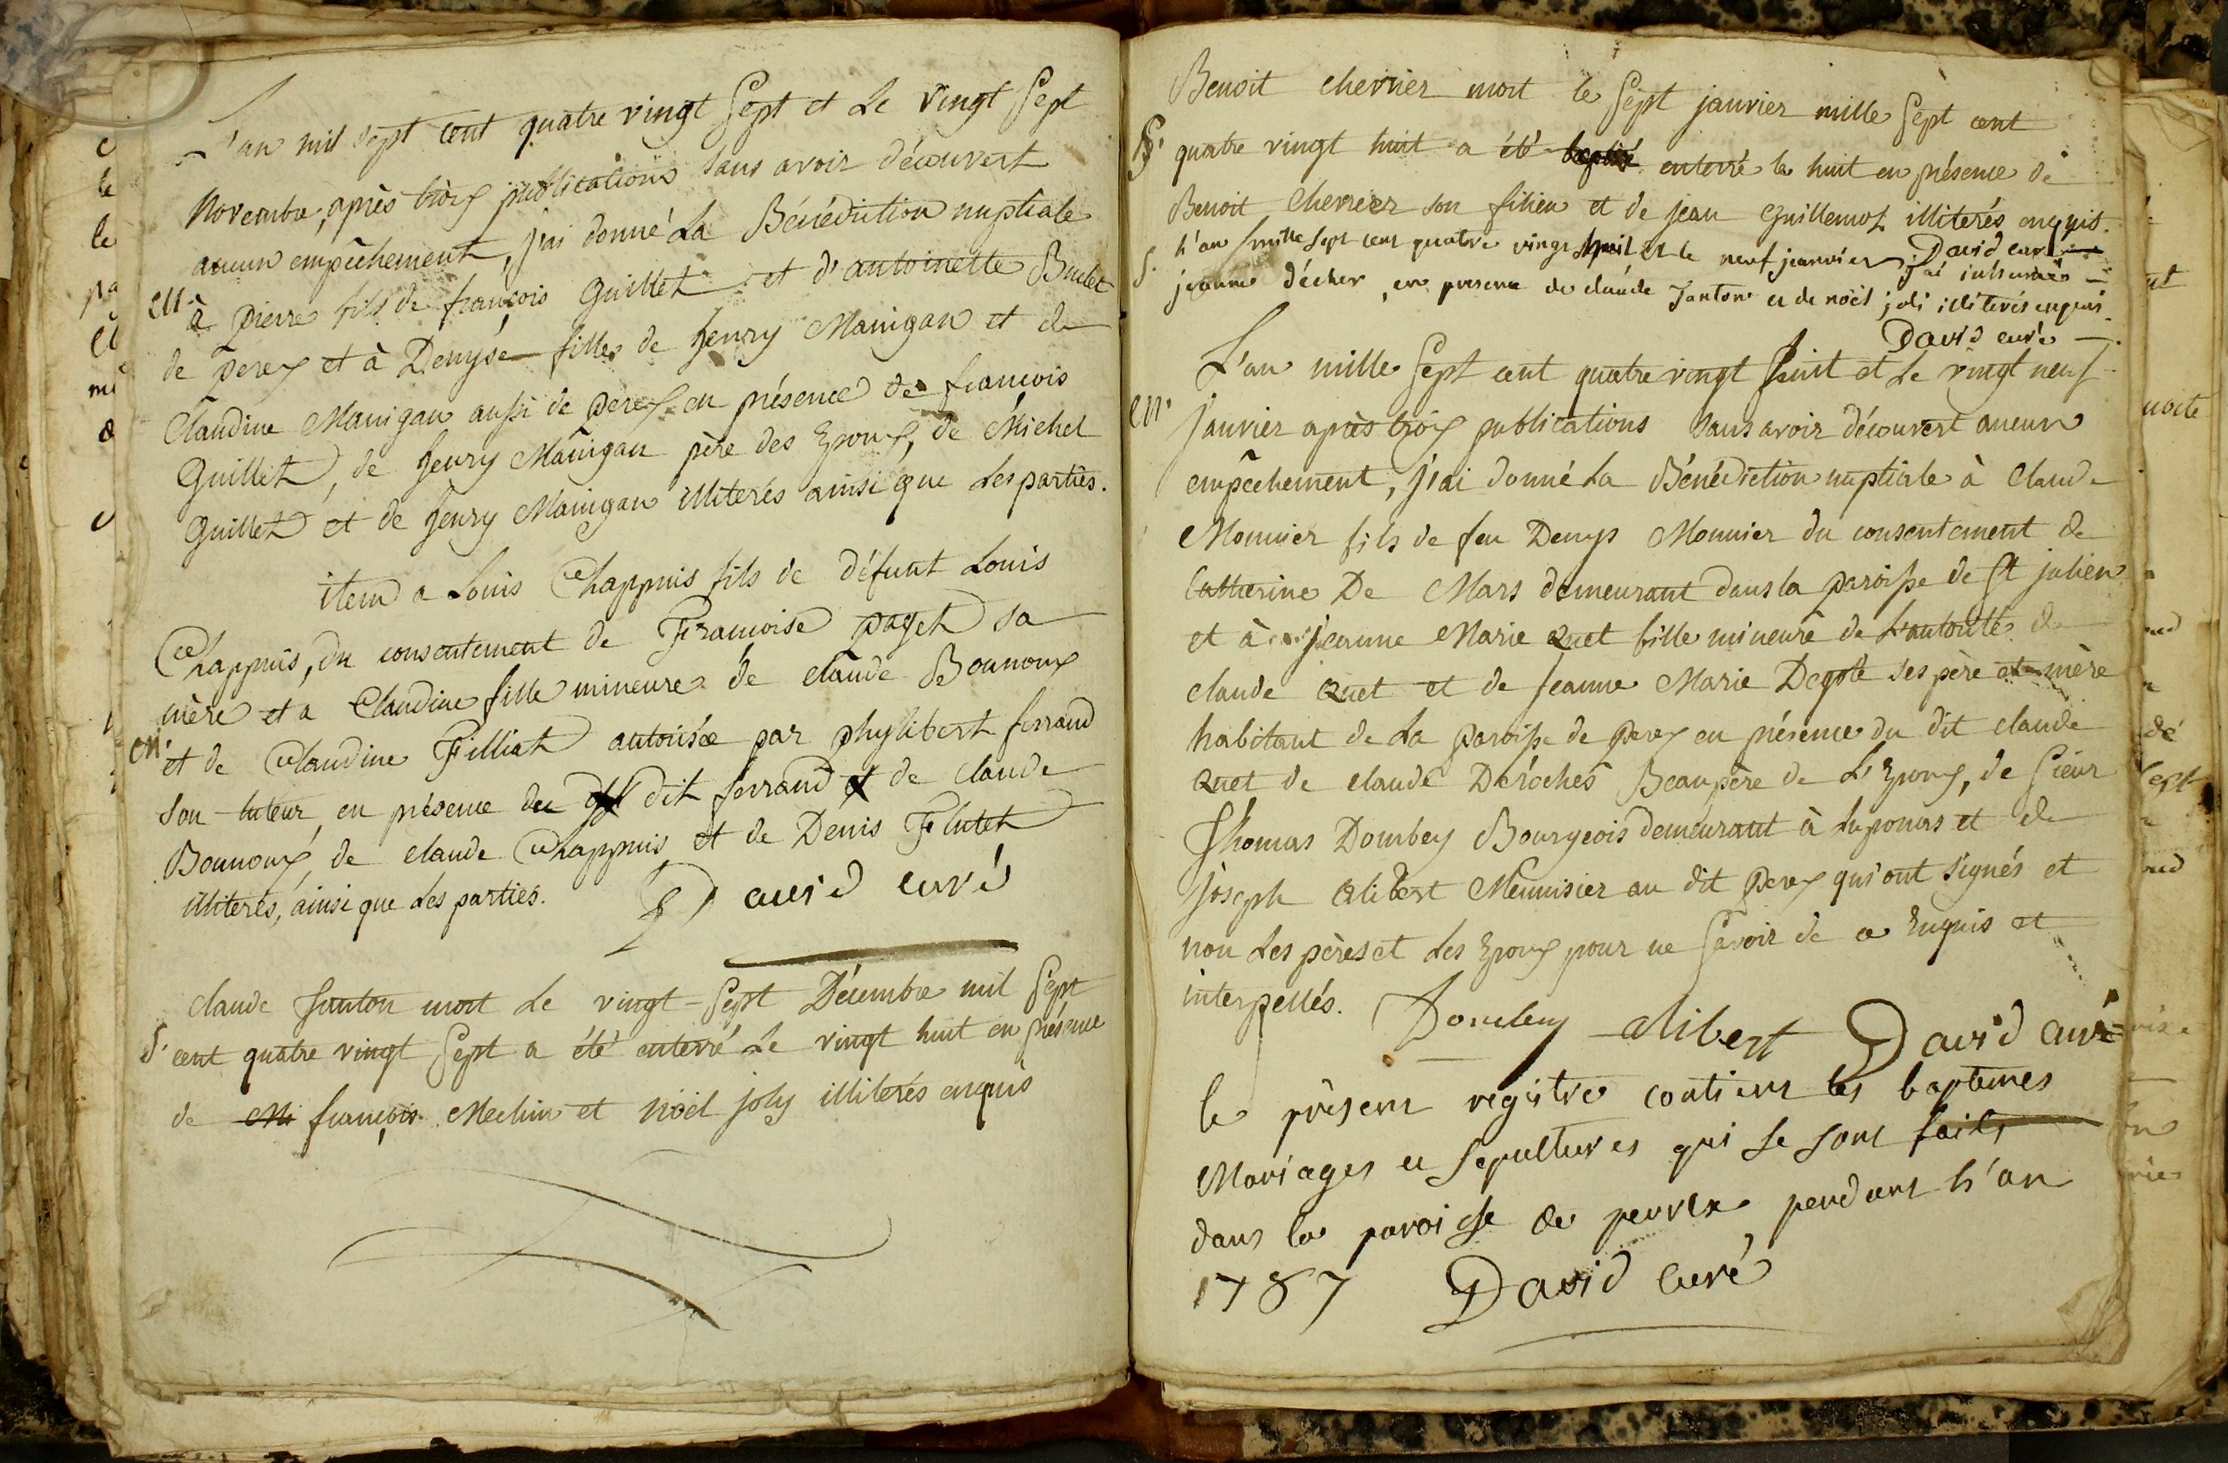 L'an mil sept cent quatre vingt Sept et Le vingt Sept
Novembre, après trois publications sans avoir découvert
aucun empêchement, j'ai donné La Bénédiction nuptiale
M. à pierre fils de françois Guillet et d'antoinette Buclet
de perex et à Denyse fille de henry Manigan et de
Claudine Manigan aussi de perex en présence de françois
Guillet, de henry Manigan père des Epoux, de Michel
Guillet et de henry Manigan illiterés ainsi que Les parties.
item a Louis Chappuis fils de défunt Louis
Chappuis, du consentement de Francoise paget sa
mère et a Claudine fille mineure de claude Bounoux
M. et de Claudine Filliat autorisée par phylibert ferrand
son tuteur, en présence du dit ferrand de claude
Bounoux, de claude Chappuis et de Denis Flutet
illiterés, ainsi que Les parties. David curé
claude Janton mort Le vingt-Sept Décembre mil Sept
S. cent quatre vingt Sept a été enterré Le vingt huit en présence
de Mi françois Mechin et Noël joly illiterés enquis
Benoit chevrier mort le Sept janvier mille Sept cent
S. quatre vingt huit a été baptisé enterré le huit en présence de
Benoit Chevrier son filieu et de jean Guillemot illiterés enquis.
David curé
S. L'an mille sept cent quatre vingt huit et le neuf janvier j'ai inhumé
jeanne décher, en presence de claude Janton et de noël joli illiterés enquis.
David curé
L'an mille Sept cent quatre vingt huit et Le vingt neuf
M. janvier après trois publications sans avoir découvert aucun
empêchement, j'ai donné La Bénédiction nuptiale à Claude
Monnier fils de feu Denys Monnier du consentement de
Catherine De Mars demeurant dans la paroisse de St julien
et à jeanne Marie Quet fille mineure de L'autorité de
claude Quet et de Jeanne Marie Degole ses père et mère
habitant de La paroisse de perex en présence du dit claude
Quet de claude Deroches Beaupère de L'Epoux, de Sieur
Thomas Dombey Bourgeois demeurant à Luponas et de
joseph Alibert Menuisier au dit perex qui ont signés et
non Les pères et Les Epoux pour ne Savoir de a Enquis et
interpellés. Dombey alibert David curé
le présent registre contient les baptemes
Mariages et Sepultures qui se sont faits
dans la paroisse de perrex pendant L'an
1787 David curé